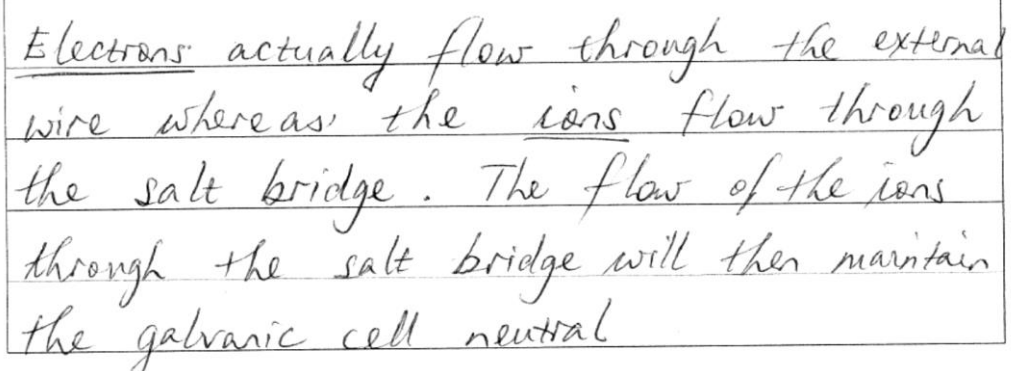 Electrons actually flow through the external
wire whereas the ions flow through
the salt bridge. The flow of the ions
through the salt bridge will then maintain
the galvanic cell neutral